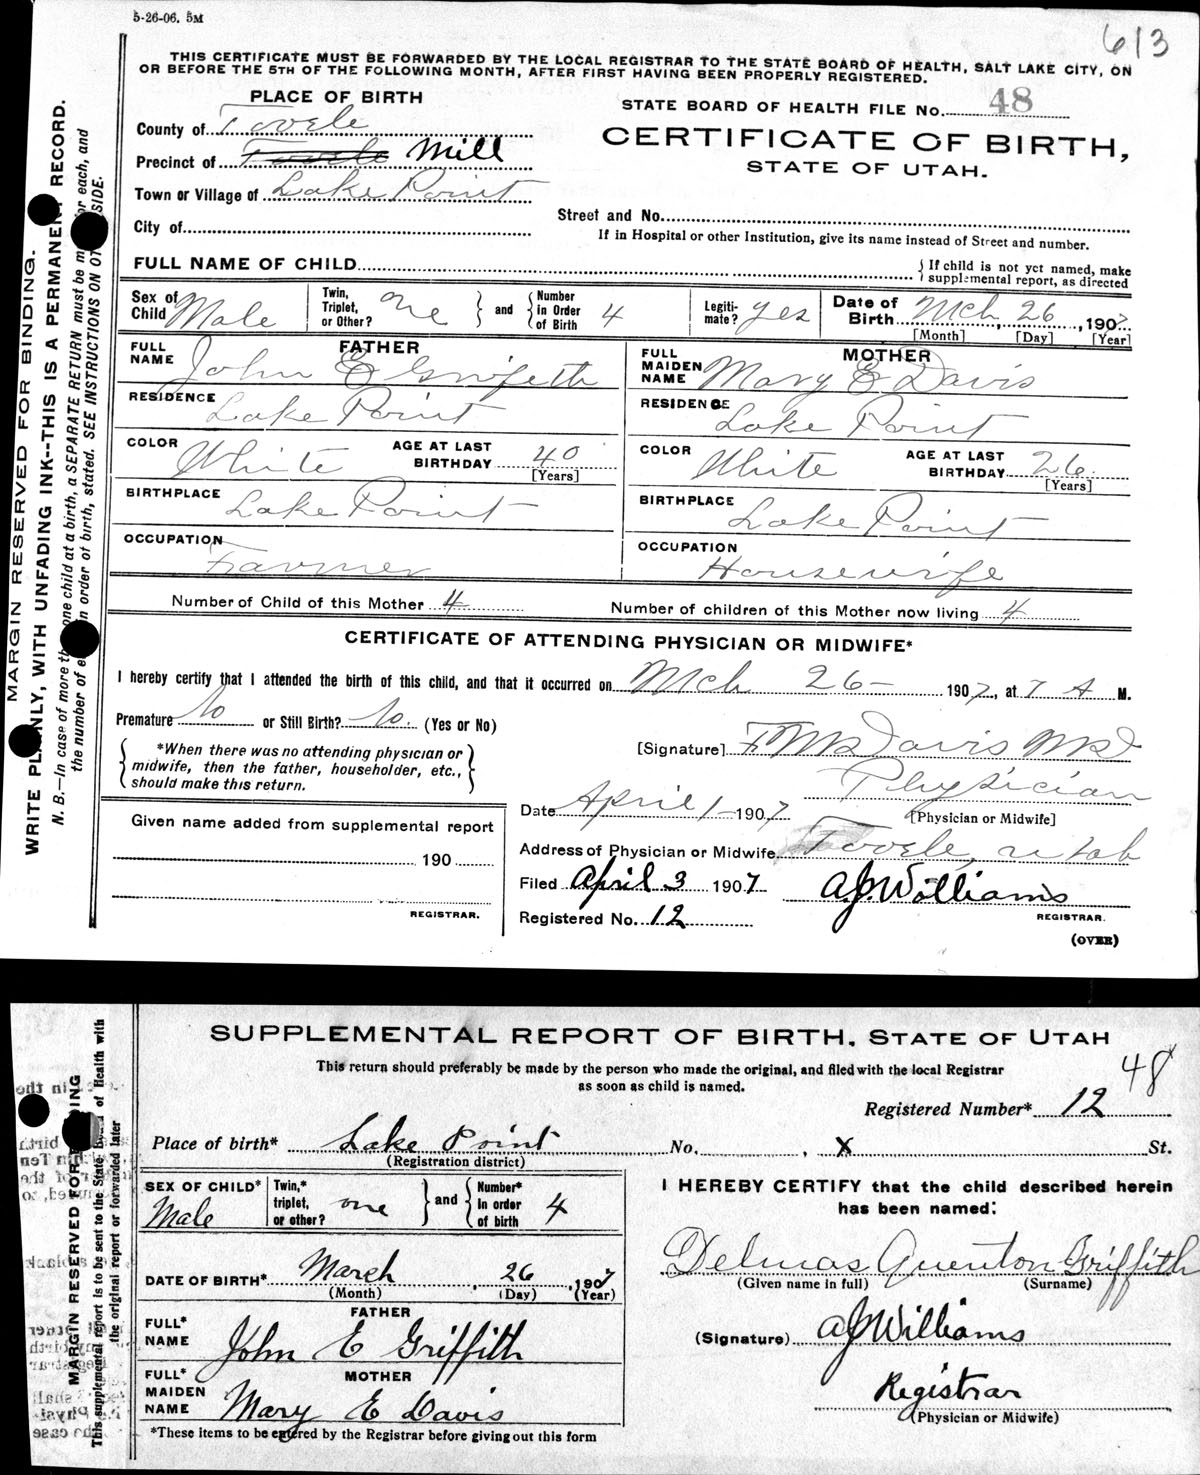 5-26-06. 5M
613
THIS CERTIFICATE MUST BE FORWARDED BY THE LOCAL REGISTRAR TO THE STATE BOARD OF HEALTH, SALT LAKE CITY, ON
OR BEFORE THE 5TH OF THE FOLLOWING MONTH, AFTER FIRST HAVING BEEN PROPERLY REGISTERED.
PLACE OF BIRTH
STATE BOARD OF HEALTH FILE No. 48
County of Tooele
CERTIFICATE OF BIRTH,
STATE OF UTAH.
Precinct of Tooele Mill
Town or Village of Lake Point
Street and No.
City of
If in Hospital or other Institution, give its name instead of Street and number.
FULL NAME OF CHILD
{ If child is not yet named, make
supplemental report, as directed
Sex of Child Male
Twin, Triplet, or Other? one } and { Number in Order of Birth 4
Legiti-mate? yes
Date of Birth Mch 26, 1907
[Month] [Day] [Year]
FATHER
FULL NAME John E Griffeth
RESIDENCE Lake Point
COLOR White AGE AT LAST BIRTHDAY 40
[Years]
BIRTHPLACE Lake Point
OCCUPATION Farmer
MOTHER
FULL MAIDEN NAME Mary E Davis
RESIDENCE Lake Point
COLOR White AGE AT LAST BIRTHDAY 26
[Years]
BIRTHPLACE Lake Point
OCCUPATION Housewife
Number of Child of this Mother 4 Number of children of this Mother now living 4
CERTIFICATE OF ATTENDING PHYSICIAN OR MIDWIFE*
I hereby certify that I attended the birth of this child, and that it occurred on Mch 26- 1907, at 7 A M.
Premature No or Still Birth? No. (Yes or No)
*When there was no attending physician or
midwife, then the father, householder, etc.,
should make this return.
[Signature] Davis MD
Physician
[Physician or Midwife]
Date April 1-1907
Address of Physician or Midwife Tooele, Utah
Filed April 3 1907 A.J. Williams
REGISTRAR.
Registered No. 12
(OVER)
Given name added from supplemental report
190
REGISTRAR.
MARGIN RESERVED FOR BINDING.
WRITE PLAINLY, WITH UNFADING INK--THIS IS A PERMANENT RECORD.
N. B.—In case of more than one child at a birth, a SEPARATE RETURN must be made for each, and
the number of each in order of birth, stated. SEE INSTRUCTIONS ON OTHER SIDE.
SUPPLEMENTAL REPORT OF BIRTH, STATE OF UTAH
This return should preferably be made by the person who made the original, and filed with the local Registrar
as soon as child is named.
48
Registered Number* 12
Place of birth* Lake Point No. , X St.
(Registration district)
SEX OF CHILD* Male
Twin,* triplet, or other? one } and { Number* In order of birth 4
DATE OF BIRTH* March , 26 , 1907
(Month) (Day) (Year)
FATHER
FULL* NAME John E Griffith
MOTHER
FULL* MAIDEN NAME Mary E Davis
*These items to be entered by the Registrar before giving out this form
I HEREBY CERTIFY that the child described herein
has been named:
Delmas Quenton Griffith
(Given name in full) (Surname)
(Signature) A J Williams
Registrar
(Physician or Midwife)
MARGIN RESERVED FOR BINDING
This supplemental report is to be sent to the State Board of Health with
the original report or forwarded later